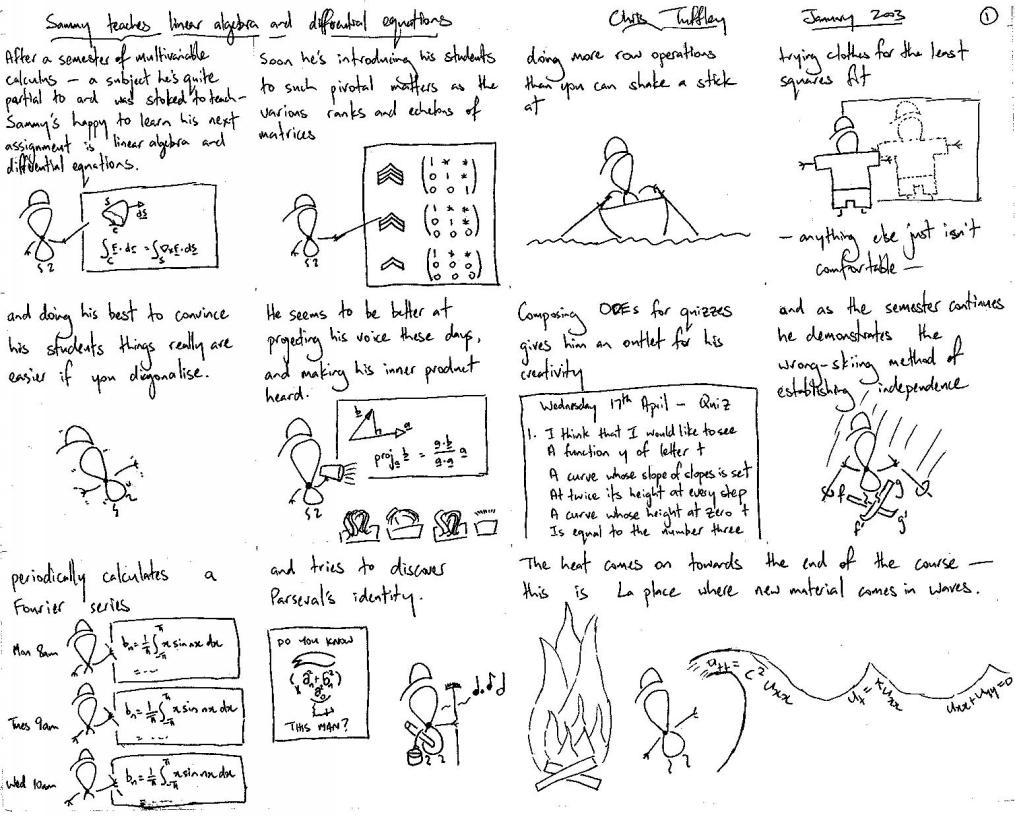 Sammy teaches linear algebra and differential equations
Chris Tuffley
January 2003
1
After a semester of multivariable
calculus – a subject he's quite
partial to and was stoked to teach –
Sammy's happy to learn his next
assignment is linear algebra and
differential equations.
S
dS
C
∫_C F·ds = ∫_S ∇×F·dS
Soon he's introducing his students
to such pivotal matters as the
various ranks and echelons of
matrices
1 * *
0 1 *
0 0 1
1 * *
0 1 *
0 0 0
1 * *
0 0 0
0 0 0
doing more row operations
than you can shake a stick
at
trying clothes for the least
squares fit
– anything else just isn't
comfortable –
and doing his best to convince
his students things really are
easier if you diagonalise.
He seems to be better at
projecting his voice these days,
and making his inner product
heard.
b
a
proj_a b = a·b / a·a a
Composing ODEs for quizzes
gives him an outlet for his
creativity
Wednesday 17th April – Quiz
1. I think that I would like to see
A function y of letter t
A curve whose slope of slopes is set
At twice its height at every step
A curve whose height at zero t
Is equal to the number three
and as the semester continues
he demonstrates the
wrong-skiing method of
establishing independence
f
g
f'
g'
periodically calculates a
Fourier series
Mon 8am
b_n = 1/π ∫_{-π}^{π} x sin nx dx
= ...
Tues 9am
b_n = 1/π ∫_{-π}^{π} x sin nx dx
= ...
Wed 10am
b_n = 1/π ∫_{-π}^{π} x sin nx dx
= ...
and tries to discover
Parseval's identity.
DO YOU KNOW
a_n² + b_n²
a_0²
THIS MAN?
The heat comes on towards the end of the course –
this is La place where new material comes in waves.
u_tt = c² u_xx
u_t = x u_xx
u_xx + u_yy = 0